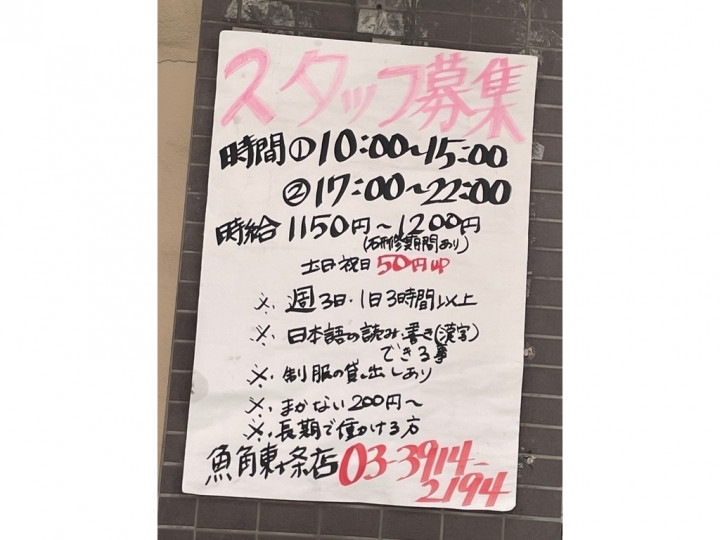 スタッフ募集
時間①10:00～15:00
②17:00～22:00
時給1150円～1200円
(研修期間あり)
土日祝日50円UP
※週3日・1日3時間以上
※日本語の読み・書き(漢字)
できる事
※制服の貸し出しあり
※まかない200円～
※長期で働ける方
魚角東十条店 03-3914-
2194